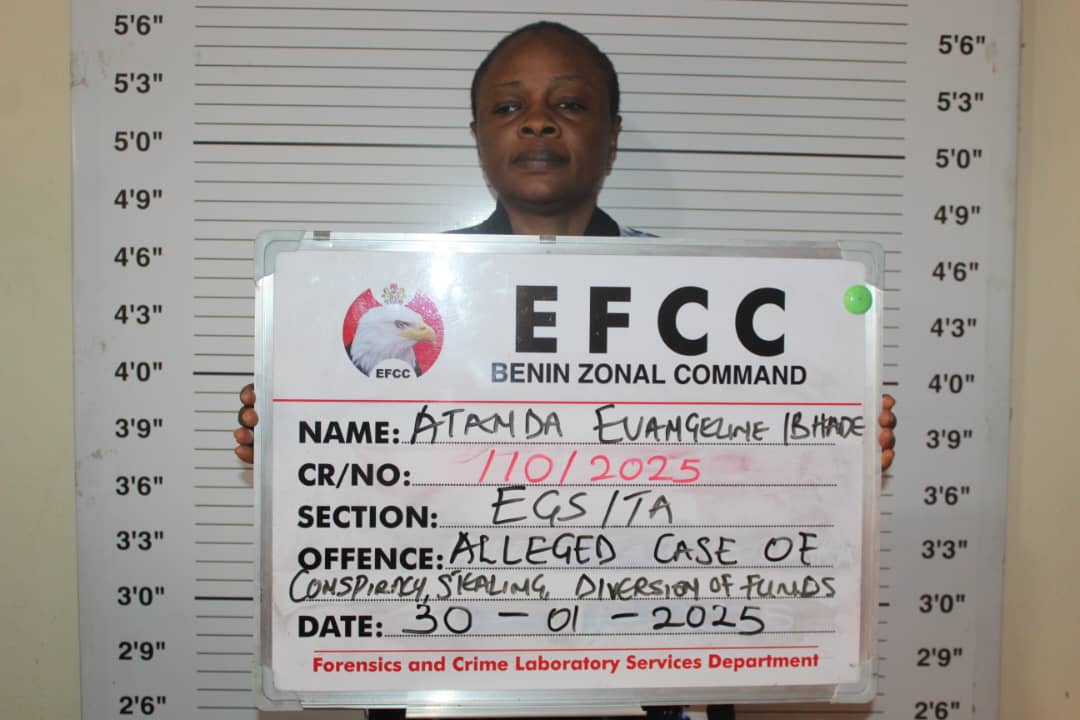 5'6" 5'6"
5'3" 5'3"
5'0" 5'0"
4'9" 4'9"
4'6" 4'6"
4'3" 4'3"
4'0" 4'0"
3'9" 3'9"
3'6" 3'6"
3'3" 3'3"
3'0" 3'0"
2'9" 2'9"
2'6" 2'6"
EFCC
EFCC
BENIN ZONAL COMMAND
NAME: ATANDA EVANGELINE IBHADE
CR/NO: 110/2025
SECTION: EGS/TA
OFFENCE: ALLEGED CASE OF
CONSPIRACY, STEALING, DIVERSION OF FUNDS
DATE: 30-01-2025
Forensics and Crime Laboratory Services Department